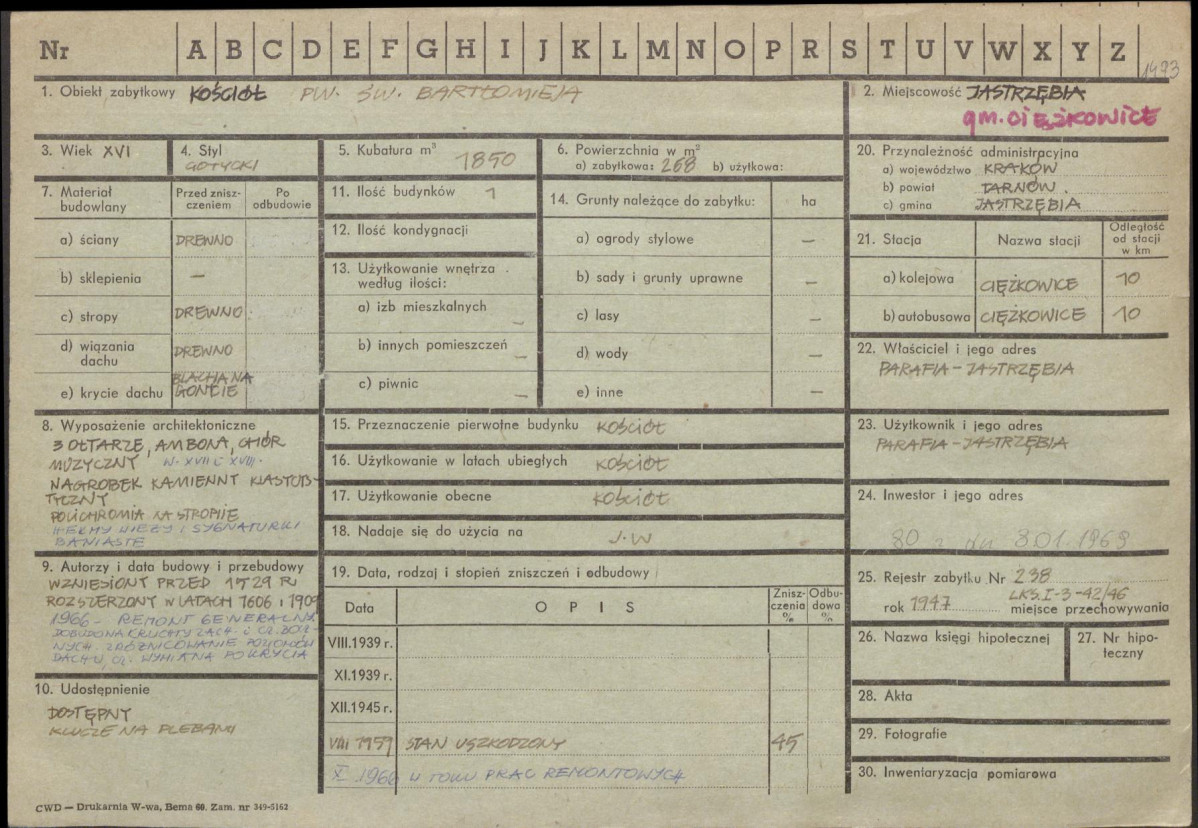 Nr A B C D E F G H I J K L M N O P R S T U V W X Y Z
1493
1. Obiekt zabytkowy KOŚCIÓŁ PW. ŚW. BARTŁOMIEJA
2. Miejscowość JASTRZĘBIA
gm. CIĘŻKOWICE
3. Wiek XVI
4. Styl
GOTYCKI
5. Kubatura m³ 1850
6. Powierzchnia w m²
a) zabytkowa: 268 b) użytkowa:
7. Materiał budowlany
Przed zniszczeniem
Po odbudowie
a) ściany DREWNO
b) sklepienia —
c) stropy DREWNO
d) wiązania dachu DREWNO
e) krycie dachu BLACHA NA GONCIE
8. Wyposażenie architektoniczne
3 OŁTARZE, AMBONA, CHÓR
MUZYCZNY W. XVII i XVIII.
NAGROBEK KAMIENNY KLASYCY-
TYCZNY
POLICHROMIA NA STROPIE
HEŁMY WIEŻY I SYGNATURKI
BANIASTE
9. Autorzy i data budowy i przebudowy
WZNIESIONY PRZED 1529 R.
ROZSZERZONY W LATACH 1606 i 1909
1966 - REMONT GENERALNY
DOBUDOWA KRUCHTY ZACH. i CZ. BOCZ-
NYCH. ZRÓŻNICOWANIE POZIOMÓW
DACHU, CZ. WYMIANA POKRYCIA
10. Udostępnienie
DOSTĘPNY
KLUCZE NA PLEBANII
11. Ilość budynków 1
12. Ilość kondygnacji
13. Użytkowanie wnętrza według ilości:
a) izb mieszkalnych —
b) innych pomieszczeń —
c) piwnic —
14. Grunty należące do zabytku: ha
a) ogrody stylowe —
b) sady i grunty uprawne —
c) lasy —
d) wody —
e) inne —
15. Przeznaczenie pierwotne budynku KOŚCIÓŁ
16. Użytkowanie w latach ubiegłych KOŚCIÓŁ
17. Użytkowanie obecne KOŚCIÓŁ
18. Nadaje się do użycia na J.W
19. Data, rodzaj i stopień zniszczeń i odbudowy
Data OPIS Zniszczenia % Odbudowa %
VIII.1939 r.
XI.1939 r.
XII.1945 r.
VIII 1959 STAN USZKODZONY 45
X 1966 W TOKU PRAC REMONTOWYCH
20. Przynależność administracyjna
a) województwo KRAKÓW
b) powiat TARNÓW.
c) gmina JASTRZĘBIA
21. Stacja Nazwa stacji Odległość od stacji w km
a) kolejowa CIĘŻKOWICE 10
b) autobusowa CIĘŻKOWICE 10
22. Właściciel i jego adres
PARAFIA - JASTRZĘBIA
23. Użytkownik i jego adres
PARAFIA - JASTRZĘBIA
24. Inwestor i jego adres
80 z dn 8.01.1969
25. Rejestr zabytku Nr 238
LKS.I-3-42/46
rok 1947 miejsce przechowywania
26. Nazwa księgi hipotecznej
27. Nr hipoteczny
28. Akta
29. Fotografie
30. Inwentaryzacja pomiarowa
CWD — Drukarnia W-wa, Bema 60. Zam. nr 349-5162